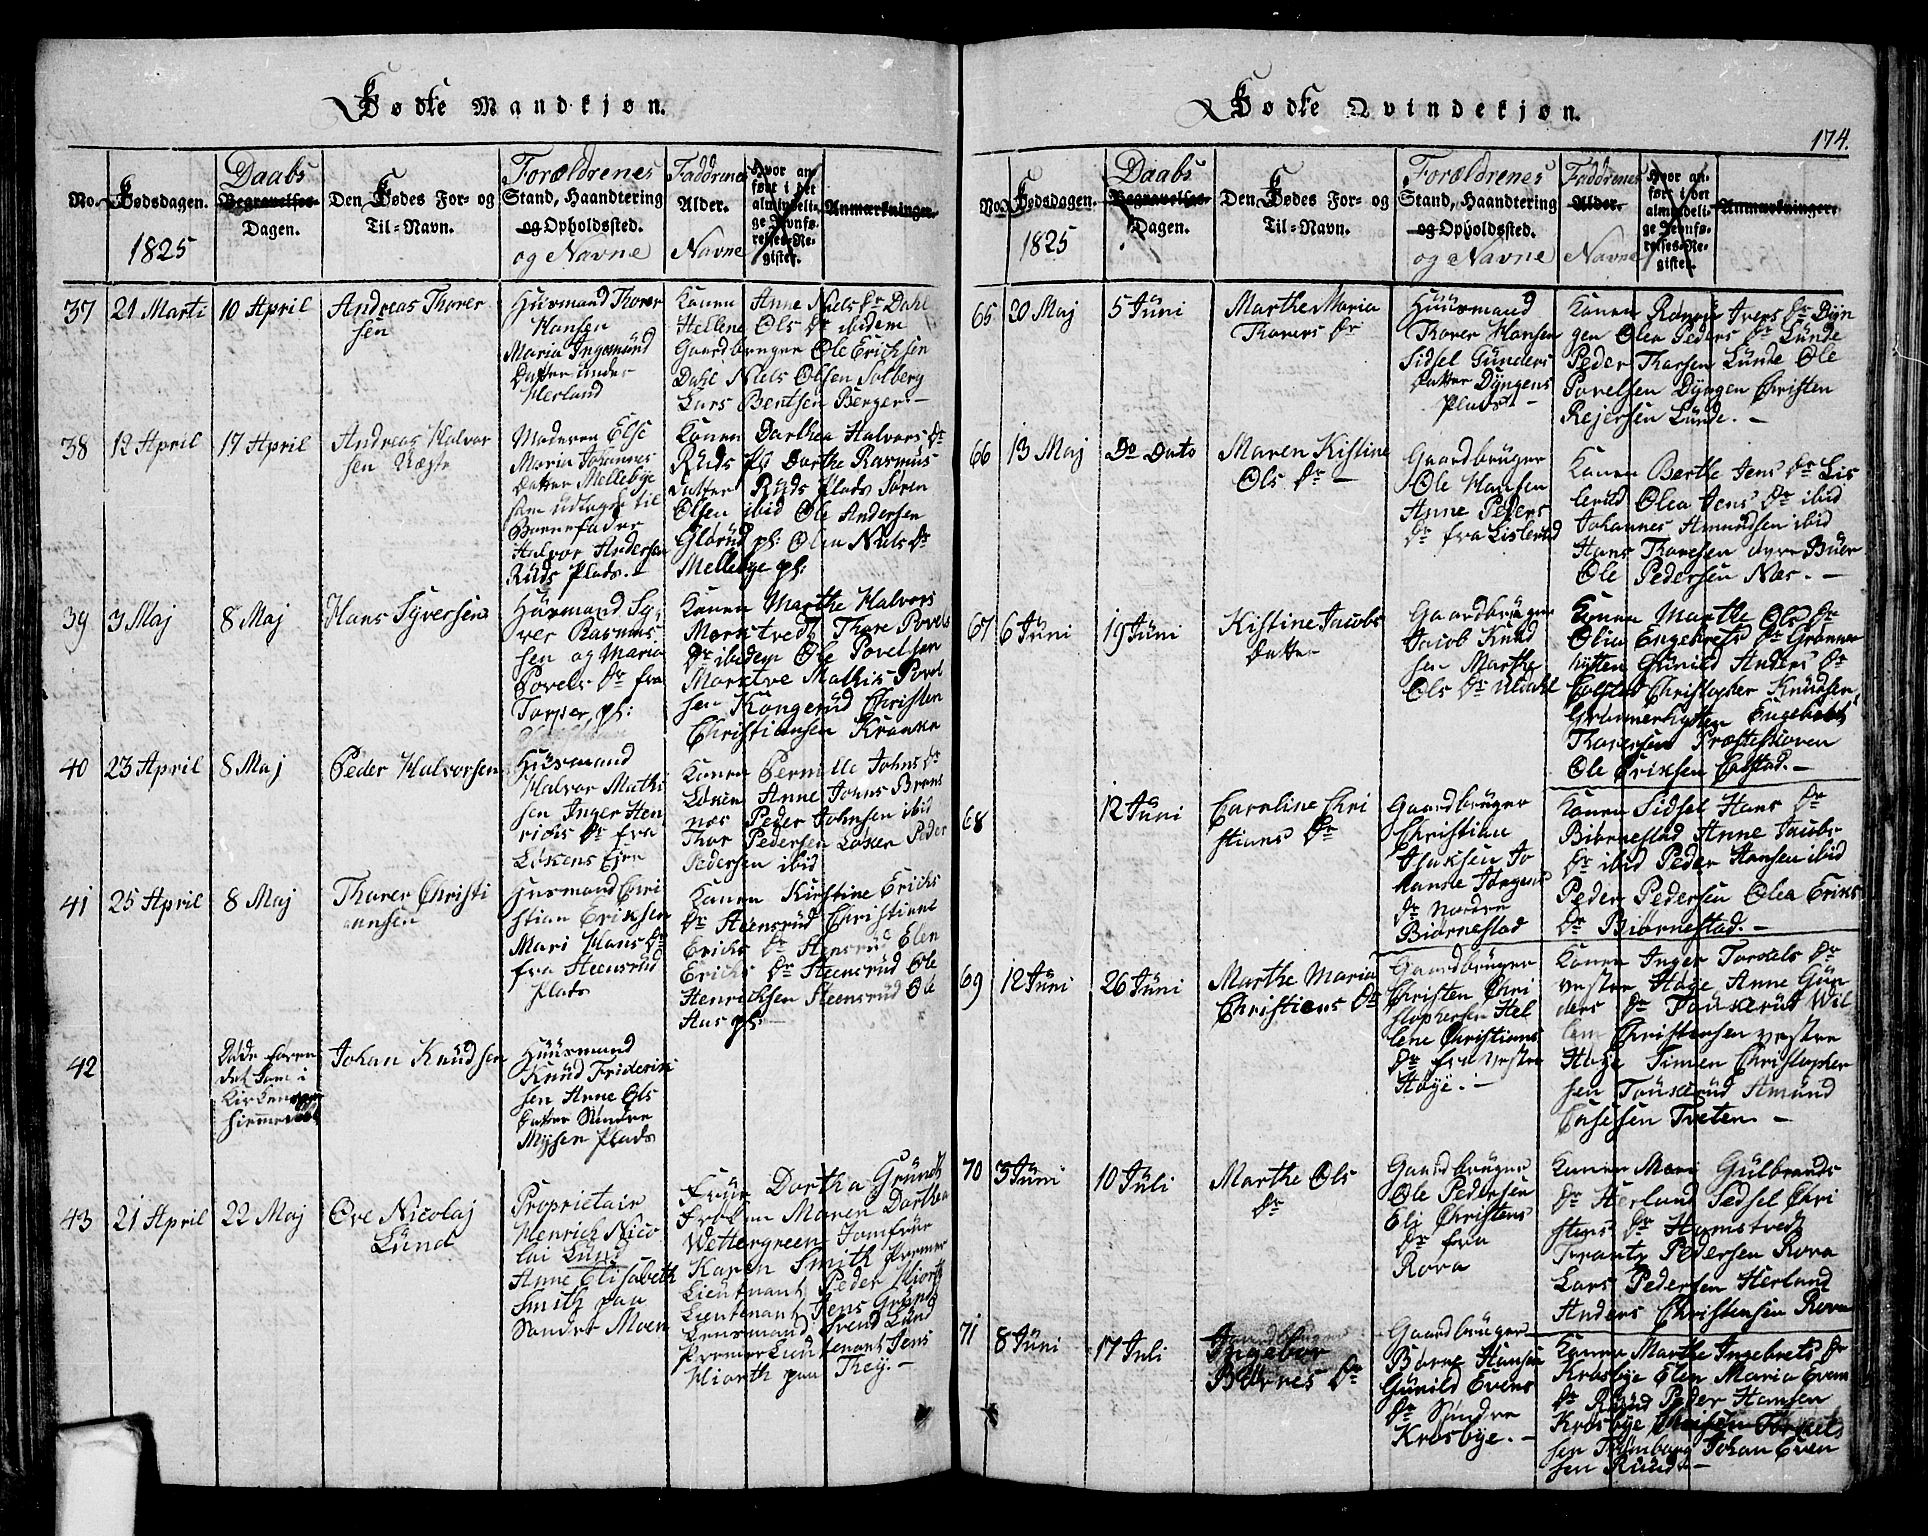 Fødte Mandkjøn.
No.
Fødsdagen.
1825
Daabs
Begravelses-
Dagen.
Den Fødes For- og
Til-Navn.
Forældrenes
Stand, Haandtering
og Opholdssted.
og Navne
Faddrenes
Alder.
Navne
Hvor an-
ført i det
almindeli-
ge Jevnfø-
relses-Re-
gister.
Anmærkninger.
37
21 Marti
10 April
Andreas Thorer
sen
Huusmand Thorer
Hansen
Maria Ingemund
Datter under
Herland
Konen Anne Niels Dr Dahl
Hellene Ols Dr ibidem
Gaardbruger Ole Ericksen
Dahl Niels Olsen Solberg
Lars Bentsen Berger.-
38
12 April
17 April
Andreas Halvor
sen Næste
Moderen Else
Maria Johannes
Datter Mellebye
som udlagde til
Barnefader
Halvor Andersen
Ruds Plads.-
Konen Dorthea Halvors Dr
Ruds pl Dorthe Rasmus
datter Ruds Plads Søren
Olsen ibid Ole Andersen
Glørud pl: Olea Niels Dr
Mellebye pl:
39
3 Maj
8 Maj
Hans Syversen
Huusmand Sy
ver Rasmus
sen og Maria
Povels Dr fra
Torper pl:
Konen Marthe Halvors
Morstvedt Thore Povels
Dr ibidem Ole Povelsen
Morstve Mathis Povel
sen Kongerud Christen
Christiansen Kranke
40
23 April
8 Maj
Peder Halvorsen
Huusmand
Halvor Mathi
sen Inger Hen
richs Dr fra
Løkens Eje
Konen Pernille Johns Dr
Løken Anne Johns Bra
næs Peder Johnsen ibid
Thor Pedersen Løken Peder
Pedersen ibid
41
25 April
8 Maj
Thorer Christi
ansen
Husmand Chri
stian Eriksen
Mari Hans Dr
fra Steensrud
Plads
Konen Kirstine Ericks
Dr Steensrud Christiane
Ericks Dr Stensrud Elen
Ericks Dr Steensrud Ole
Henricksen Steensrud Ole
Aas pl:
42
Døde foren
det kom i
Kirken var
hiemmedøbt
Johan Knudsen
Huusmand
Knud Friderik
sen Anne Ols
Datter Søndre
Mysen Plads
43
21 April
22 Maj
Ove Nicolaj
Lund
Proprietair
Henrich Nico
lai Lund
Anne Elisabeth
Smith paa
Sandre Moen
Frue Dorthea Grundt
Frøken Maren Dorthea
Wettergreen Jomfrue
Karen Smith Premer
Lieutnant Peder Hiorth
Lieutenant Jens Grundt
Lensmand Svend Lund
Premer Lieutenant Jens
Hiorth paa Trøj.-
Fødte Qvindekjøn.
174.
No.
Fødsdagen.
1825
Daabs
Begravelses-
Dagen.
Den Fødes For- og
Til-Navn.
Forældrenes
Stand, Haandtering
og Opholdssted.
og Navne
Faddrenes
Alder.
Navne
Hvor an-
ført i det
almindeli-
ge Jevnfø-
relses-Re-
gister.
Anmærkninger.
65
20 Maj
5 Juni
Marthe Maria
Thorers Dr
Huusmand
Thorer Hansen
Sidsel Gunders
Datter Dyngens
Plads -
Konen Rønnu Ivers Dr Dyn
gen Olea Peders Dr Lunde
Peder Thorsen Lunde Ole
Povelsen Dyngen Christen
Rejersen Lunde.-
66
13 Maj
Do Dato
Maren Kistine
Ols Dr -
Gaardbruger
Ole Hansen
Anne Peders
Dr fra Lislerud
Konen Berthe Jens Dr Lis
lerud Olea Jens Dr ibid
Johannes Amundsen ibid
Hans Thoresen Buer
Ole Pedersen Næs.-
67
6 Juni
19 Juni
Kistine Jacobs
Datter
Gaardbruger
Jacob Knud
sen Marthe
Ols Dr Uldahl
Konen Marthe Ols Dr
Olea Engebrets Dr Grønner
hytten Gunild Anders Dr
Colstad Christopher Knudsen
Grønnerhytten Engebret
Thoresen Præsteskoven
Ole Eriksen Colstad.-
68
12 Juni
Caroline Chri
stians Dr
Gaardbruger
Christian
Isaksen Jo
hanne Jørgens
Dr Nordre
Biørnestad
Konen Sidsel Hans Dr
Biørnestad Anne Jacobs
Dr ibid Peder Hansen ibid
Peder Pedersen Olea Eriks
Dr Biørnestad.-
69
12 Juni
26 Juni
Marthe Maria
Christiens Dr
Gaardbruger
Christen Chri
stophersen Hel
lene Christians
Dr fra Vestre
Høje.-
Konen Inger Torkels Dr
vestre Høje Anne Gun
ders Dr Tønnerud Wil
lem Christensen vestre
Høje Simen Christopher
sen Tønnerud Amund
Tresen Treten.-
70
3 Juni
10 Juli
Marthe Ols
Dr
Gaardbruger
Ole Pedersen
Eli Christens
Dr fra
Rova
Konen Mari Gulbrands
Dr Herland Sedsel Chri
stens Dr Hamstvedt
Frantz Pedersen Rova
Lars Pedersen Herland
Anders Christensen Rova
71
8 Juni
17 Juli
Ingebor
Børnes Dr
Gaardbruger
Børne Hansen
Gunild Evens
Dr Søndre
Krosbye.-
Konen Marthe Ingebrets Dr
Krosbye Elen Maria Evens
Dr Ruud Peder Hansen
Krosbye Torkels
sen Trømborg Johan Even
sen Ruud -